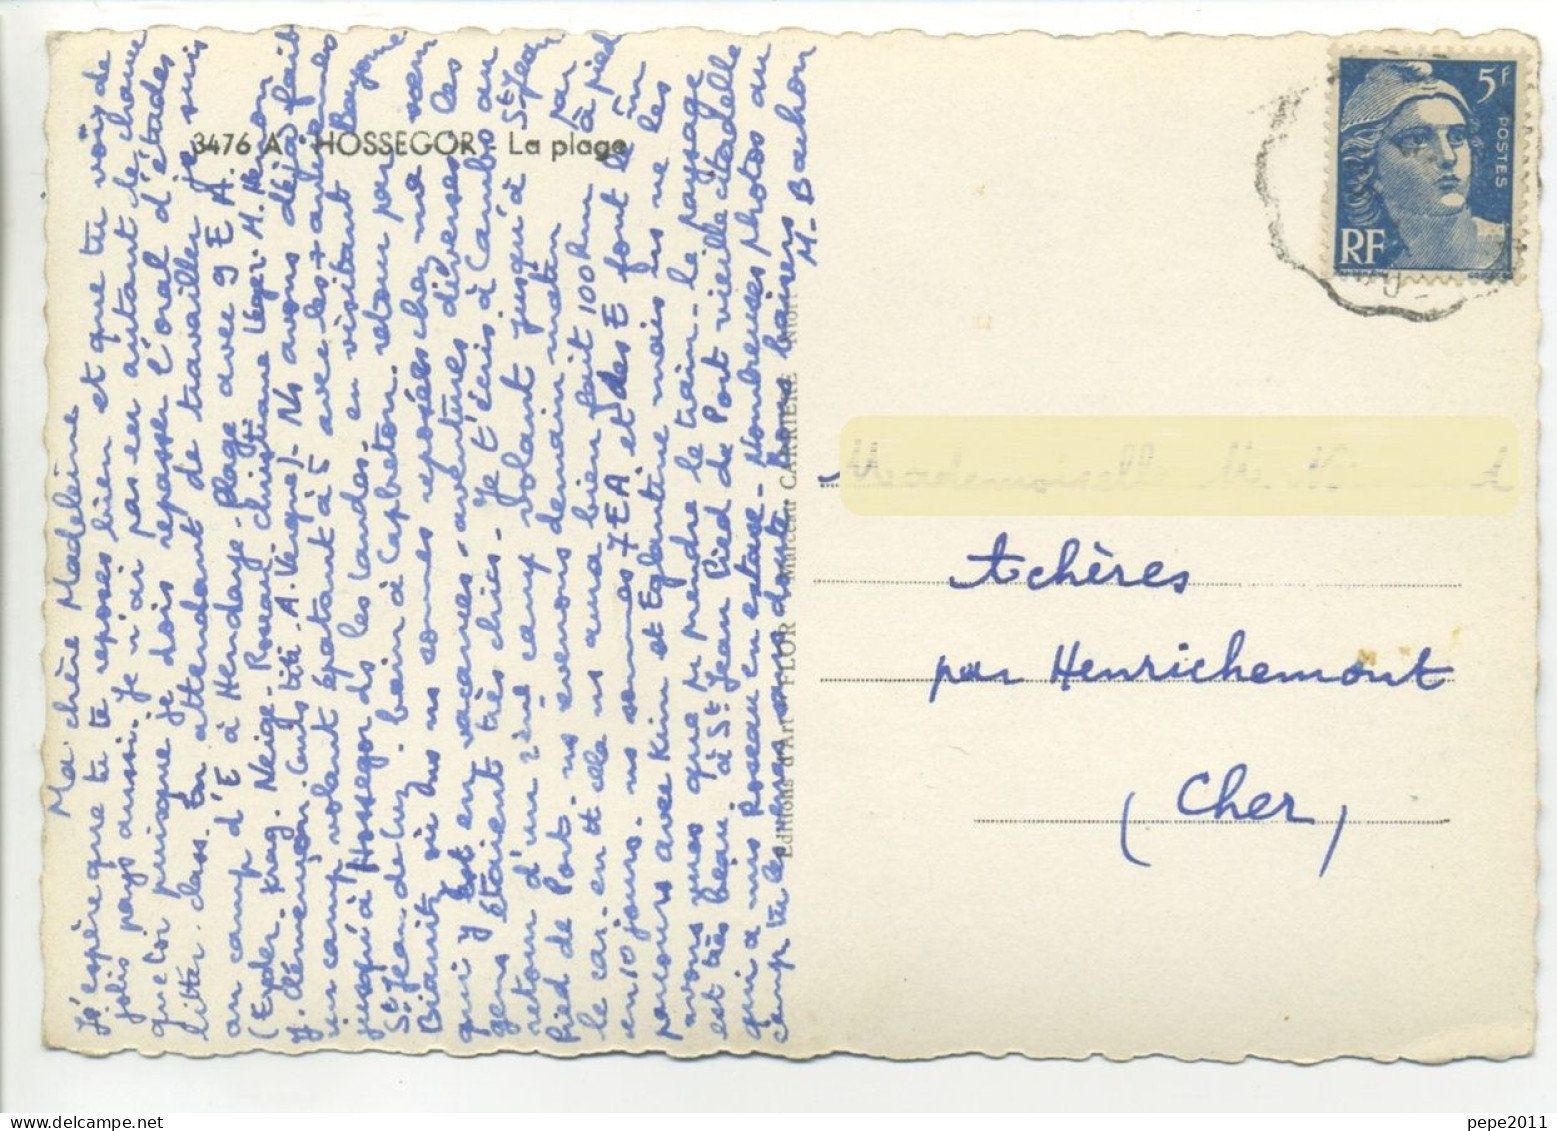 3476 A - HOSSEGOR - La plage
Ma chère Madeleine
J'espère que tu te reposes bien et que tu vois de
jolis pays aussi. Je n'ai pas eu autant de chance
que toi puisque je dois repasser l'oral d'études
litter. class. En attendant de travailler je suis
au camp d'E à Hendaye-Plage avec 9 E A.
Neige - Roseau christiane Leger. M.
A. Vergne) - Ns avons déjà fait
un camp volant épatant à 5 avec les + anciennes
jusqu'à Hossegor ds les Landes. en visitant Bayonne
St Jean de Luz. bain à Capbreton. retour par
Biarritz où ns ns sommes reposées chez ma sœur
qui y est en vacances - aventures diverses. les
gens étaient très chics. Je t'écris à Cambo au
retour d'un 2ème camp volant jusqu'à St Jean
Pied de Port. ns revenons demain matin par
le car. en tt cela ns aura bien fait 100 km à pied
en 10 jours. ns sommes 7 EA et des E font le m
parcours avec Kim et Eglantine mais ns ne les
avons vues que pr prendre le train - le paysage
est très beau. à St Jean Pied de Port vieille citadelle
qui a mis Roseau en extase - Nombreuses photos au
camp tu les verras sans doute - Bons baisers
M. Bachon
Editions d'Art FLOR Marceau CARRIERE Niort
5F
POSTES
RF
Achères
par Henrichemont
(Cher)
pepe2011